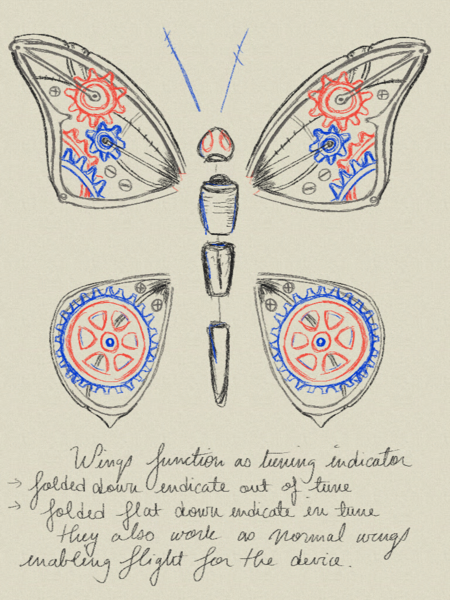 Wings function as tuning indicator
→ folded down indicate out of tune
→ folded flat down indicate in tune
they also work as normal wings
enabling flight for the device.